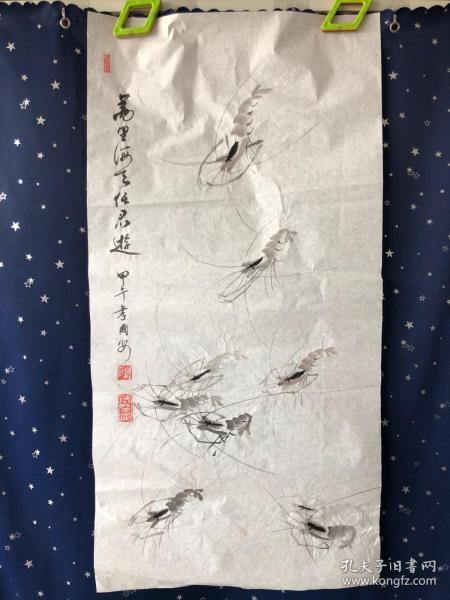 萬里海天任君遊
甲午李國安
孔夫子旧书网
www.kongfz.com